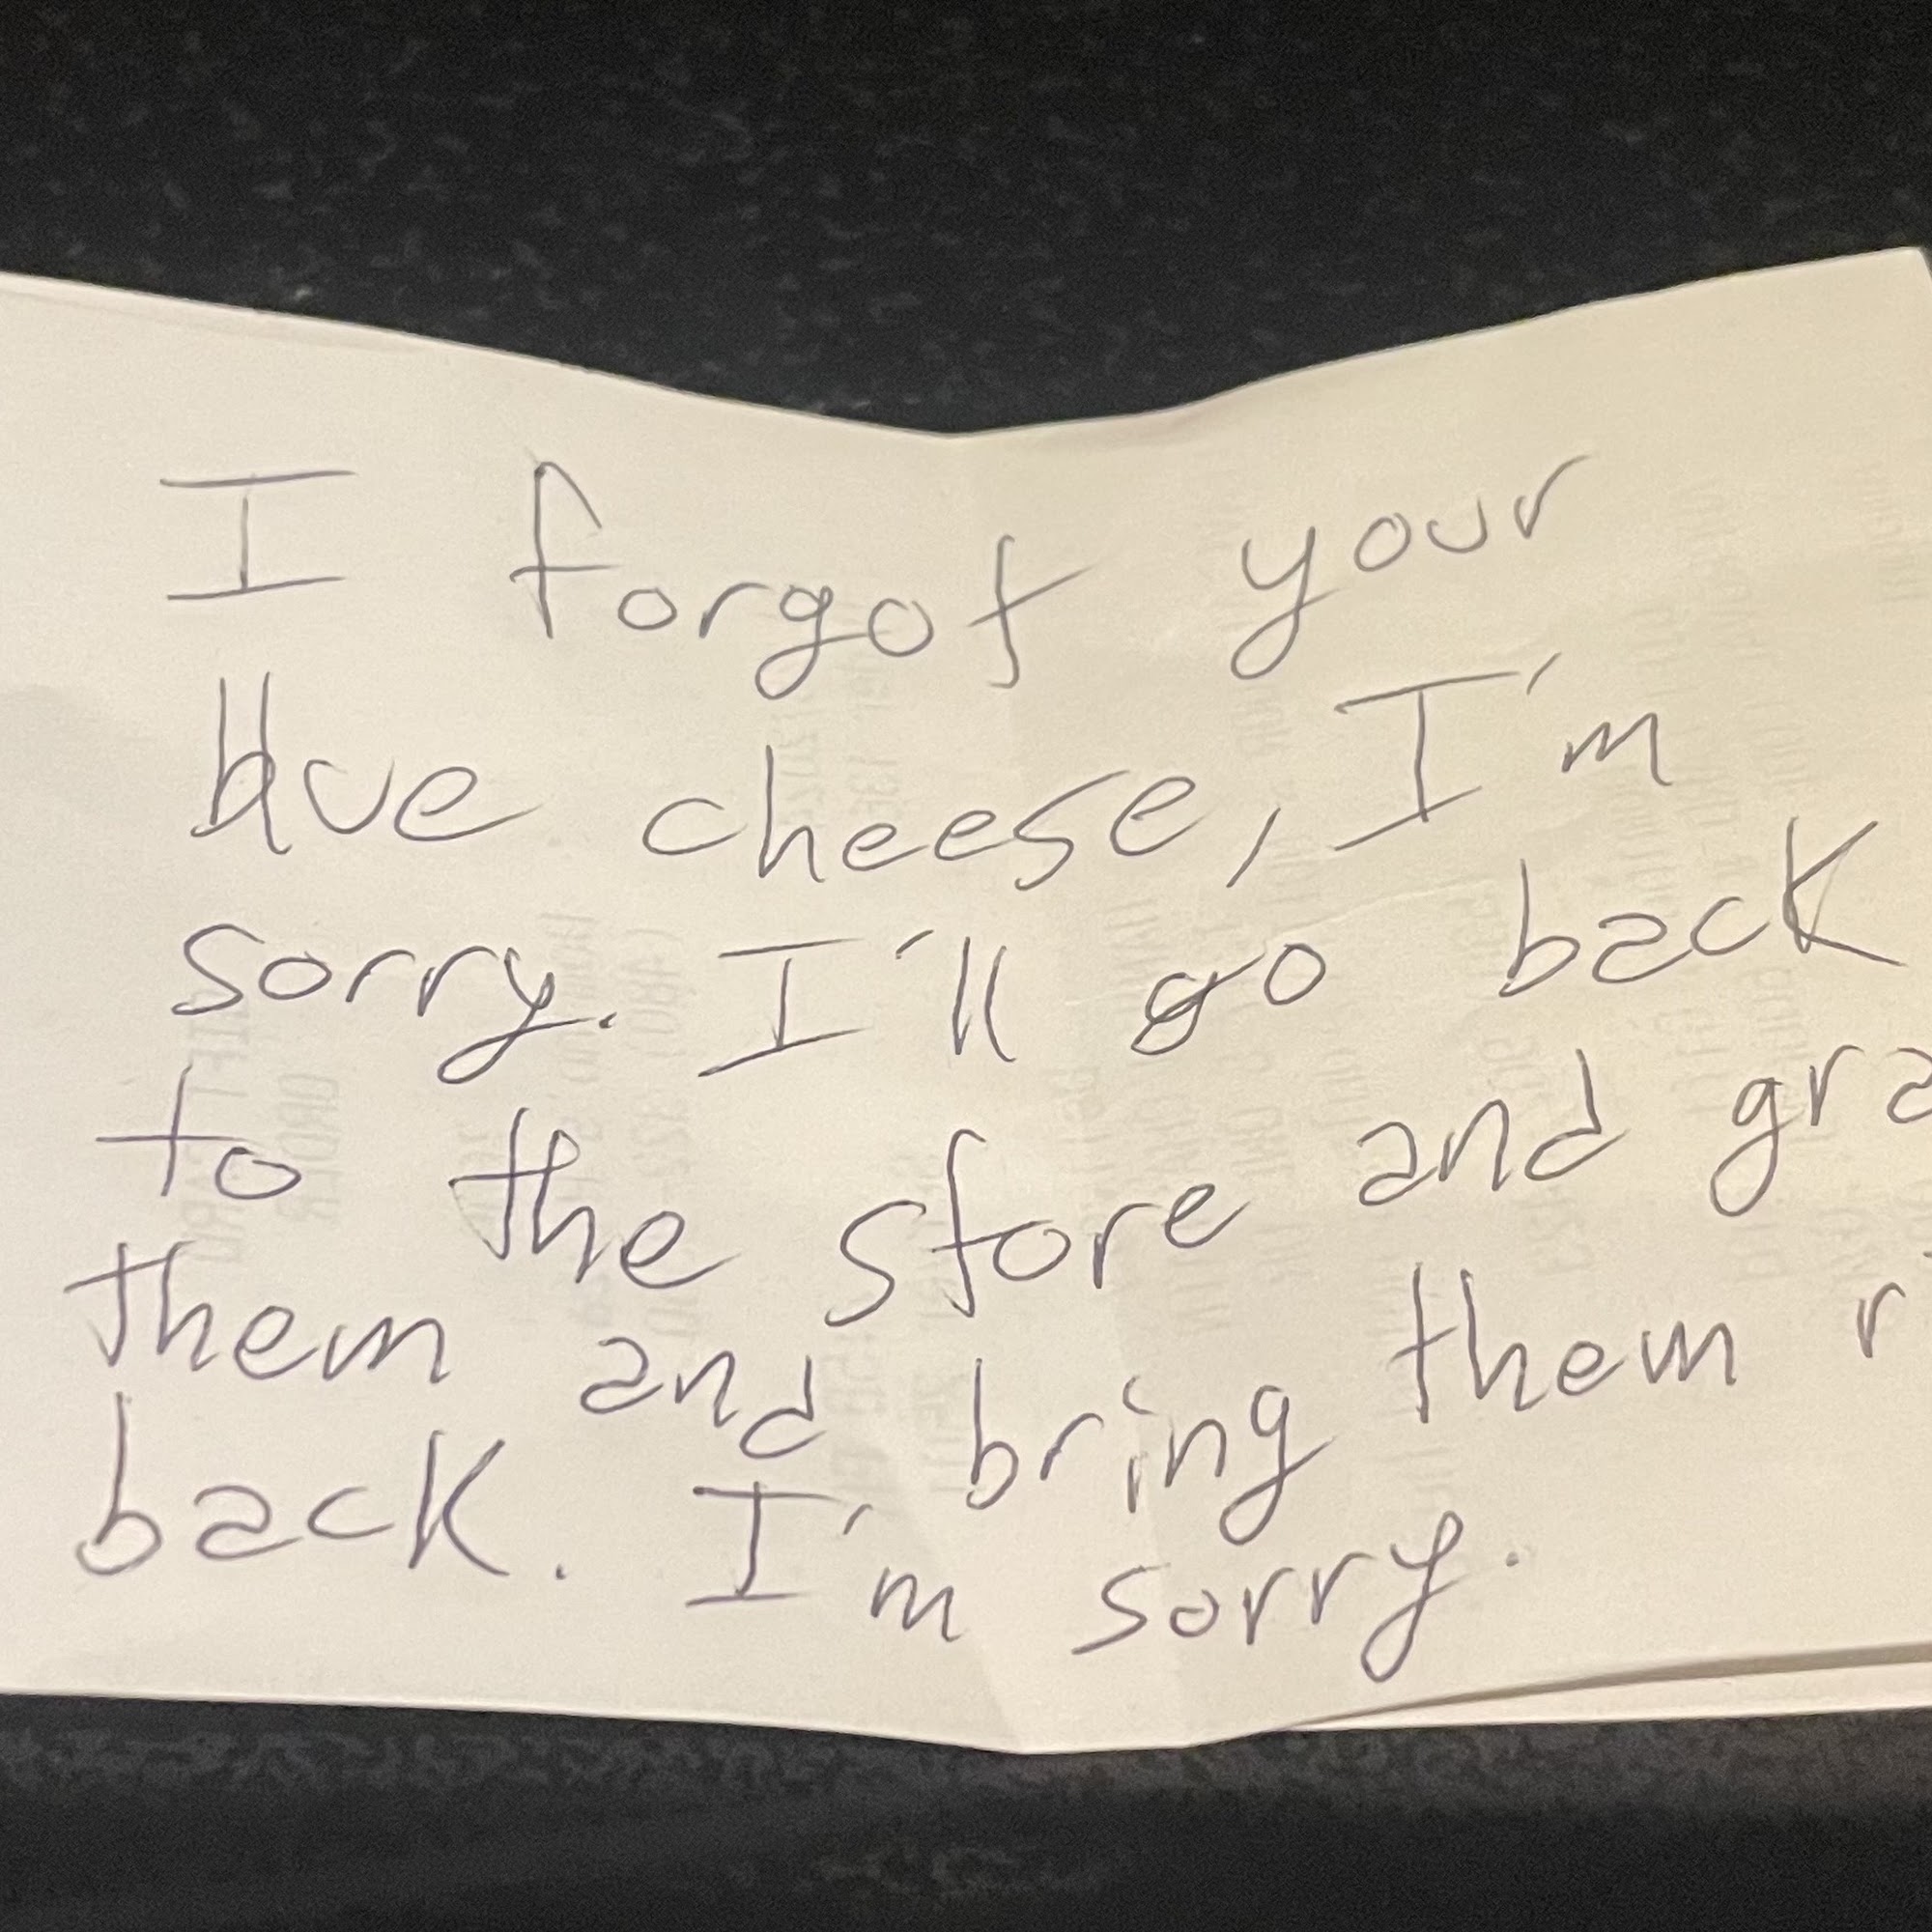 I forgot your
blue cheese, I'm
sorry. I'll go back
to the store and gra
them and bring them r
back. I'm sorry.